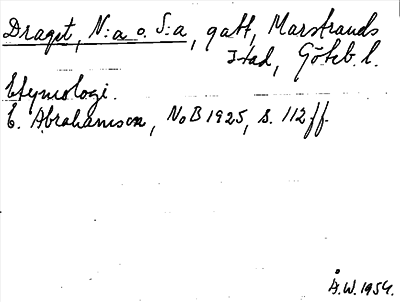 Draget, N:a o. S:a, gatt, Marstrands
stad, Göteb. l.
Etymologi.
E. Abrahamson, NoB 1925, s. 112 ff.
Å.W. 1954.